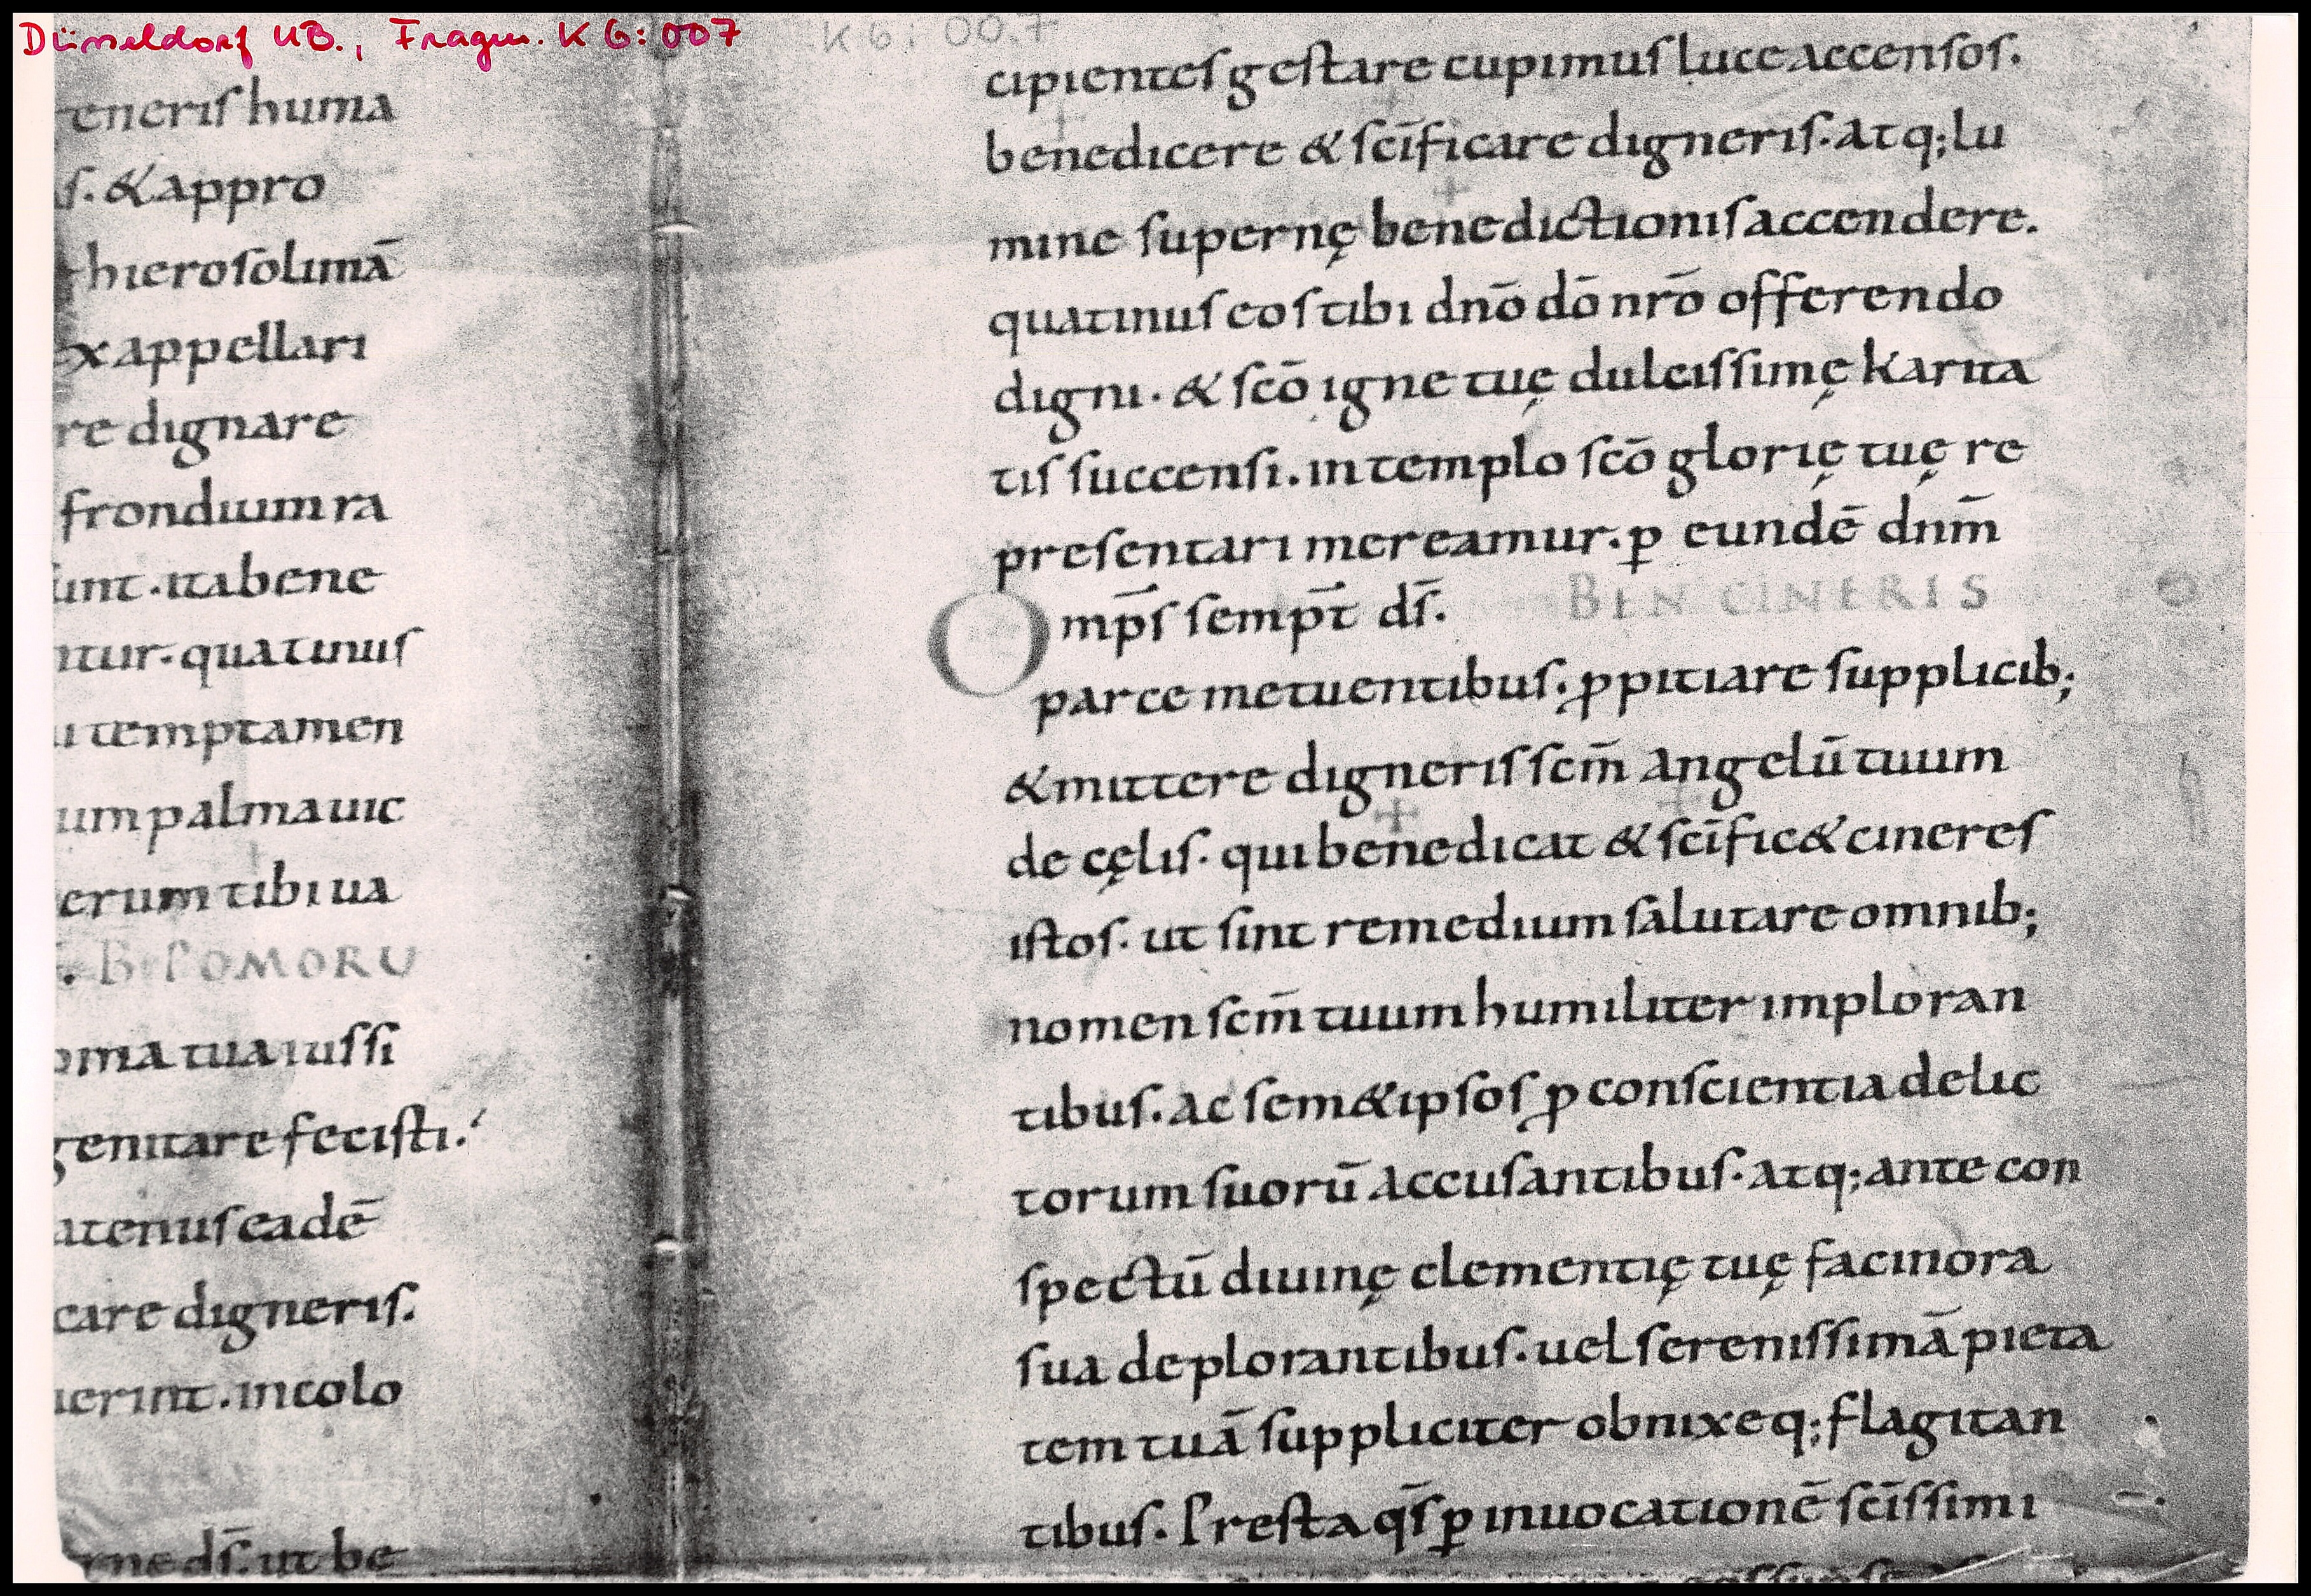 Düsseldorf UB., Fragm. K 6:007
K 6: 007
eneris huma
s. & appro
hierosolimā
ex appellari
re dignare
frondium ra
sunt. ita bene
ntur. quatinus
i temptamen
um palma uic
erum tibi ua
. B POMORU
oma tua iussi
genitare fecisti.
atenus eadē
care digneris.
uerint. incolo
rne ds̄. ut be
cipientes gestare cupimus luce accensos.
benedicere & scīficare digneris. atq; lu
mine supernę benedictionis accendere.
quatinus eos tibi dnō dō nrō offerendo
digni. & scō igne tuę dulcissimę karita
tis succensi. in templo scō glorię tuę re
presentari mereamur. ꝑ eundē dnm̄
Omp̄s semp̄t ds̄. BEN CINERIS
parce metuentibus. ꝓpitiare supplicib;
& mittere digneris scm̄ angelū tuum
de cęlis. qui benedicat & scīfic& cineres
istos. ut sint remedium salutare omnib;
nomen scm̄ tuum humiliter imploran
tibus. ac sem&ipsos ꝓ conscientia delic
torum suorū accusantibus. atq; ante con
spectū diuinę clementię tuę facinora
sua deplorantibus. uel serenissimā pieta
tem tuā suppliciter obnixeq; flagitan
tibus. Presta qs̄ ꝑ inuocationē scīssimi